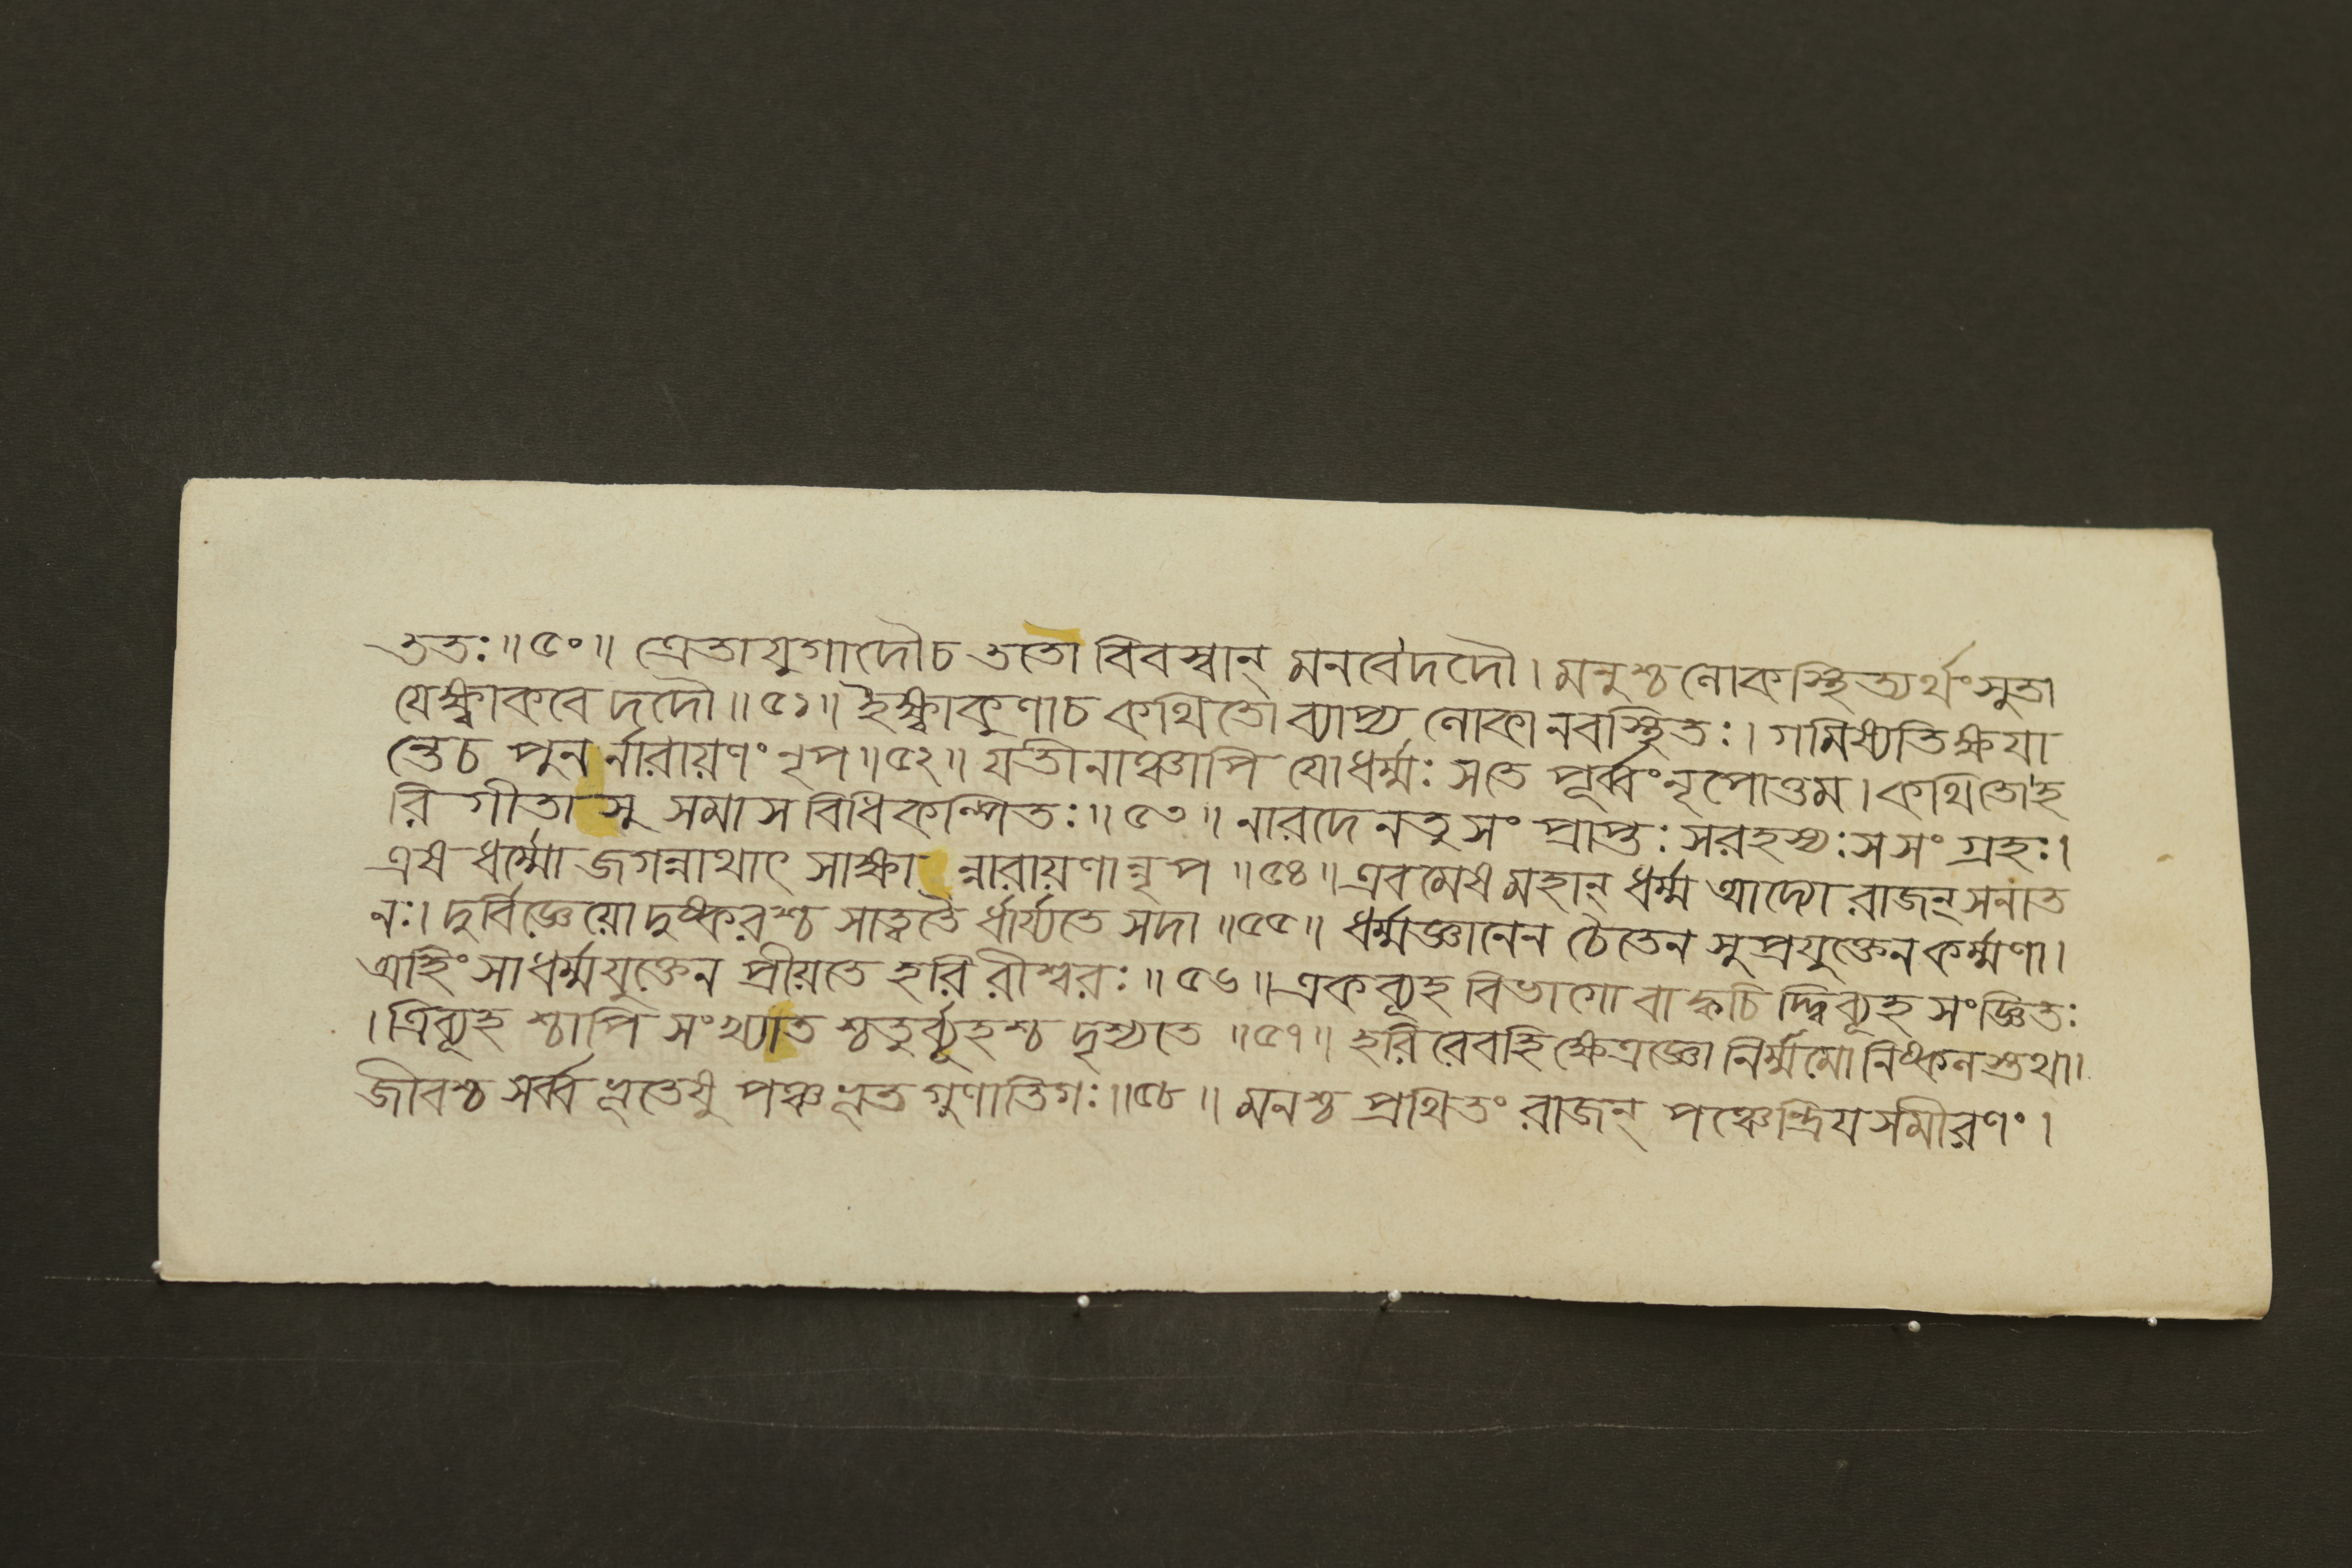 ততঃ॥৫০॥ ত্রেতাযুগাদৌচ ততো বিবস্বান্ মনবেদদৌ।মনুশ্চ লোকস্থিত্যর্থং সুতা
যেক্ষ্বাকবে দদৌ॥৫১॥ ইক্ষ্বাকুণাচ কথিতো ব্যাপ্য লোকানবস্থিতঃ।গমিষ্যতিক্ষযা
ন্তেচ পুনর্নারায়ণং নৃপ॥৫২॥ যতীনাঞ্চাপি যোধর্ম্মঃ সতে পূর্ব্বং নৃপোত্তম।কথিতোহ
রি গীতাসু সমাস বিধিকল্পিতঃ॥৫৩॥ নারদেনতু সং প্রাপ্তঃ সরহস্যঃ সসং গ্রহঃ।
এষ ধর্ম্মো জগন্নাথাৎ সাক্ষান্নারায়ণান্নৃপ॥৫৪॥এবমেষ মহান্ ধর্ম্ম আদ্যো রাজন্ সনাত
নঃ।দুর্বিজ্ঞেয়ো দুষ্করশ্চ সাত্বতৈ র্ধার্য্যতে সদা॥৫৫॥ ধর্ম্মজ্ঞানেন চৈতেন সুপ্রযুক্তেন কর্ম্মণা।
অহিংসাধর্ম্মযুক্তেন প্রীয়তে হরি রীশ্বরঃ॥৫৬॥একব্যূহ বিভাগো বা ক্বচি দ্দ্বিব্যূহ সংজ্ঞিতঃ
।ত্রিব্যূহ শ্চাপি সংখ্যাত শ্চতুর্ব্যূহশ্চ দৃশ্যতে॥৫৭॥ হরি রেবহি ক্ষেত্রজ্ঞো নির্ম্মমো নিষ্কলস্তথা।
জীবশ্চ সর্ব্ব ভূতেষু পঞ্চ ভূত গুণাতিগঃ॥৫৮॥ মনশ্চ প্রথিতং রাজন্ পঞ্চেন্দ্রিয সমীরণং।